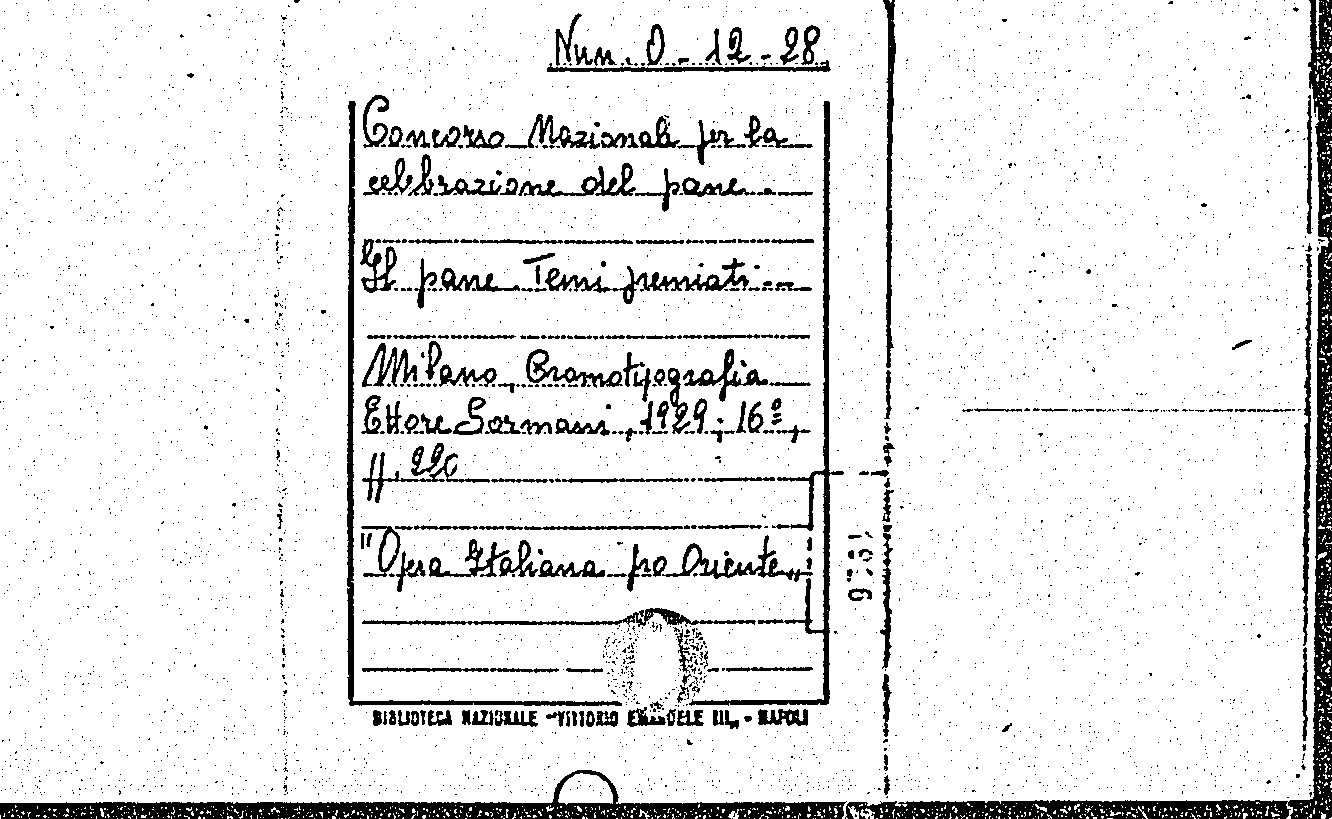 Nun. O - 12 - 28
Concorso Nazionali per la
celebrazione del pane.
Il pane. Temi premiati ...
Milano, Cromotipografia
Ettore Sormani, 1929; 16º,
pp. 220
"Opera Italiana pro Oriente„
BIBLIOTECA NAZIONALE "VITTORIO EMANUELE III„ - NAPOLI